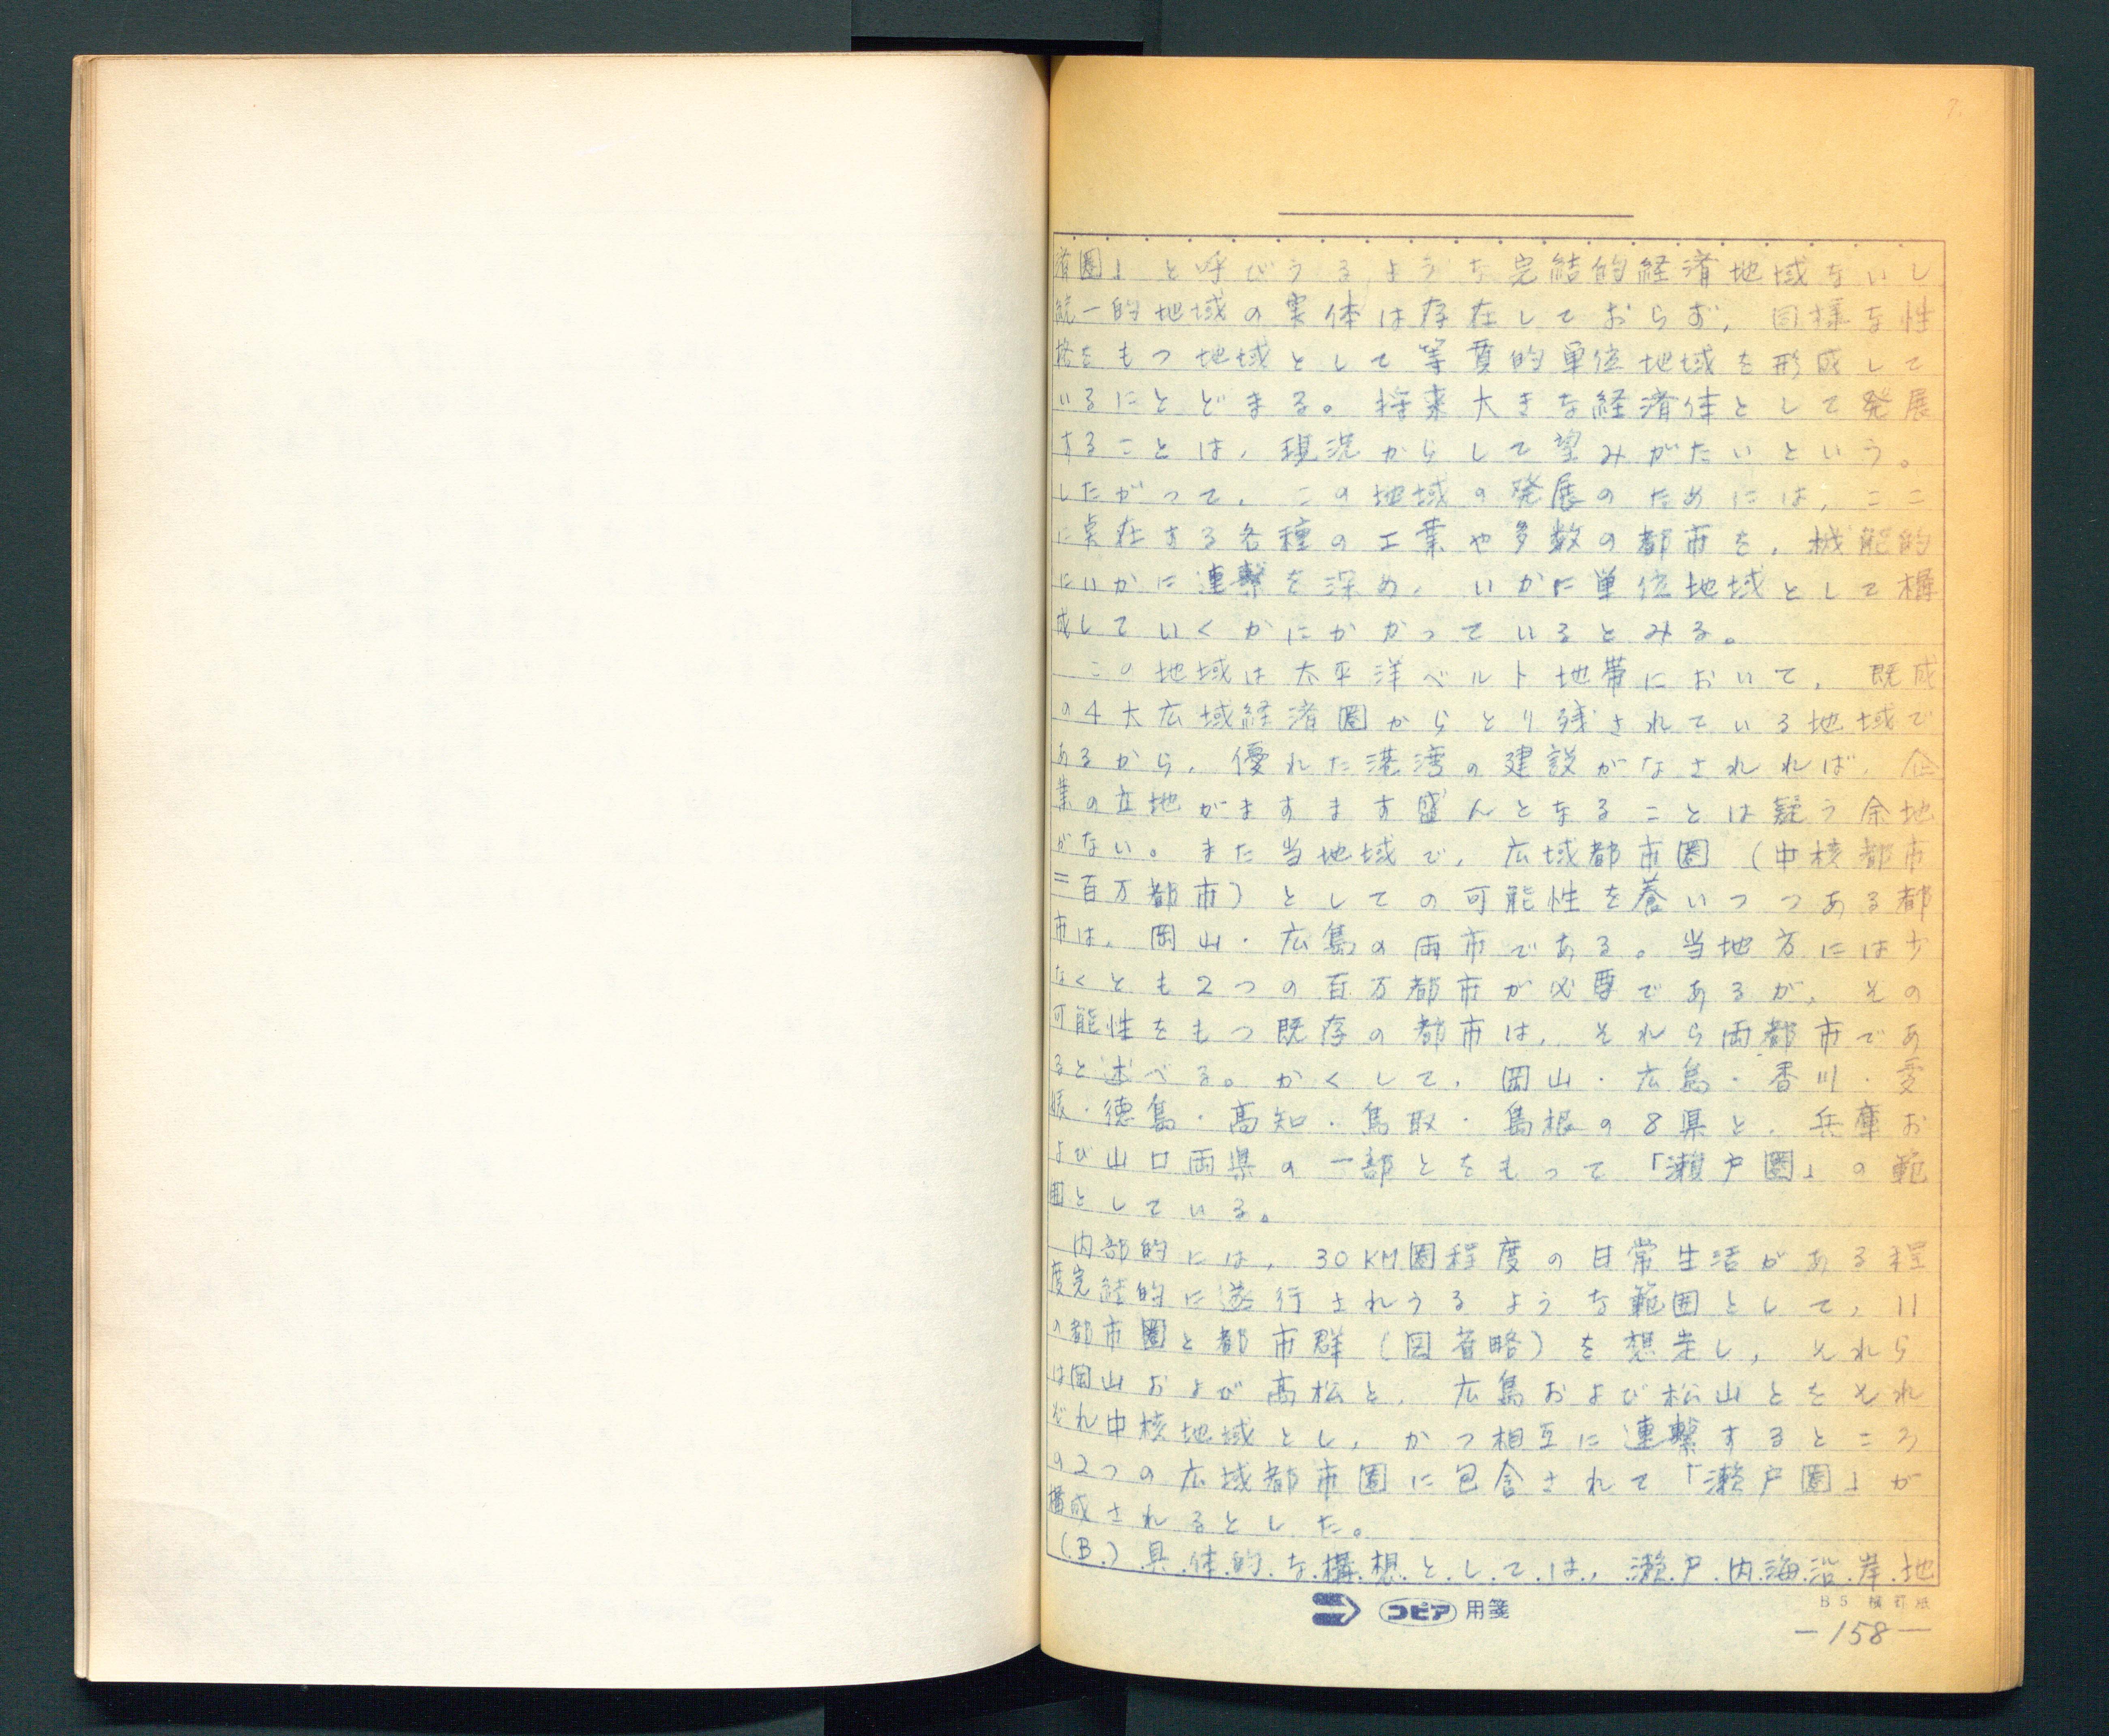 済圏」と呼びうるような完結的経済地域ないし
統一的地域の実体は存在しておらず,同様な性
格をもつ地域として等質的単位地域を形成して
いるにとどまる。将来大きな経済体として発展
することは,現況からして望みがたいという。
したがって,この地域の発展のためには,ここ
に点在する各種の工業や多数の都市を,機能的
にいかに連繋を深め,いかに単位地域として構
成していくかにかかっているとみる。
この地域は太平洋ベルト地帯において,既成
の4大広域経済圏からとり残されている地域で
あるから,優れた港湾の建設がなされれば,企
業の立地がますます盛んとなることは疑う余地
がない。また当地域で,広域都市圏(中核都市
=百万都市)としての可能性を養いつつある都
市は,岡山・広島の両市である。当地方には少
なくとも2つの百万都市が必要であるが,その
可能性をもつ既存の都市は,それら両都市であ
ると述べる。かくして,岡山・広島・香川・愛
媛・徳島・高知・鳥取・島根の8県と,兵庫お
よび山口両県の一部とをもって「瀬戸圏」の範
囲としている。
内部的には,30KM圏程度の日常生活がある程
度完結的に遂行されうるような範囲として,11
の都市圏と都市群(図省略)を想定し,それら
は岡山および高松と,広島および松山とをそれ
ぞれ中核地域とし,かつ相互に連繋するところ
の2つの広域都市圏に包含されて「瀬戸圏」が
構成されるとした。
(B)具体的な構想としては,瀬戸内海沿岸地
コピア用箋
B5 横罫紙
—158—